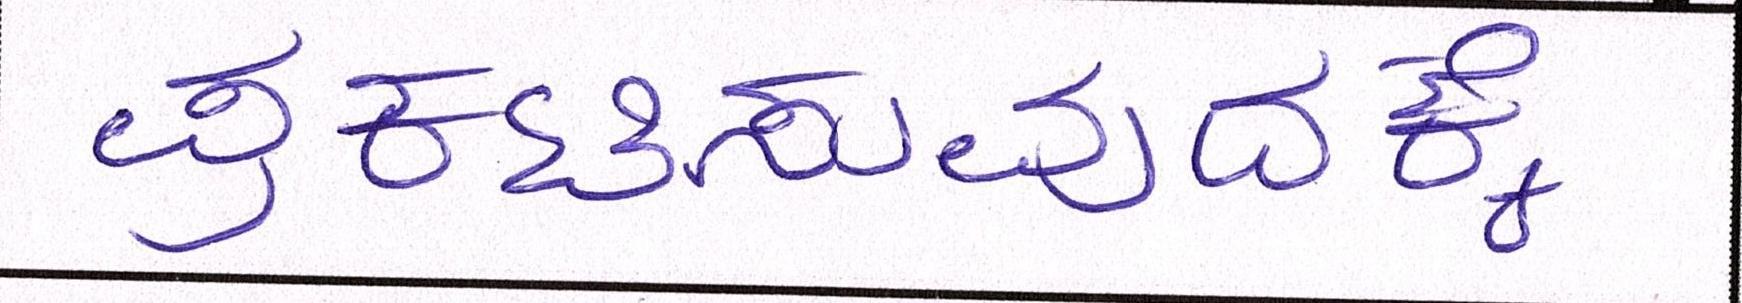 ಪ್ರಕಟಿಸುವುದಕ್ಕೆ